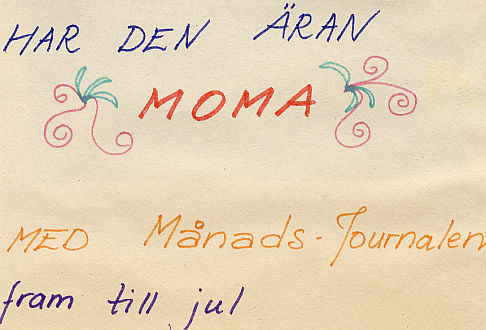 HAR DEN ÄRAN
MOMA
MED Månads-Journalen
fram till jul